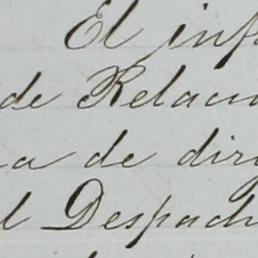 El inf
de Relaci
a de dir
l Despach